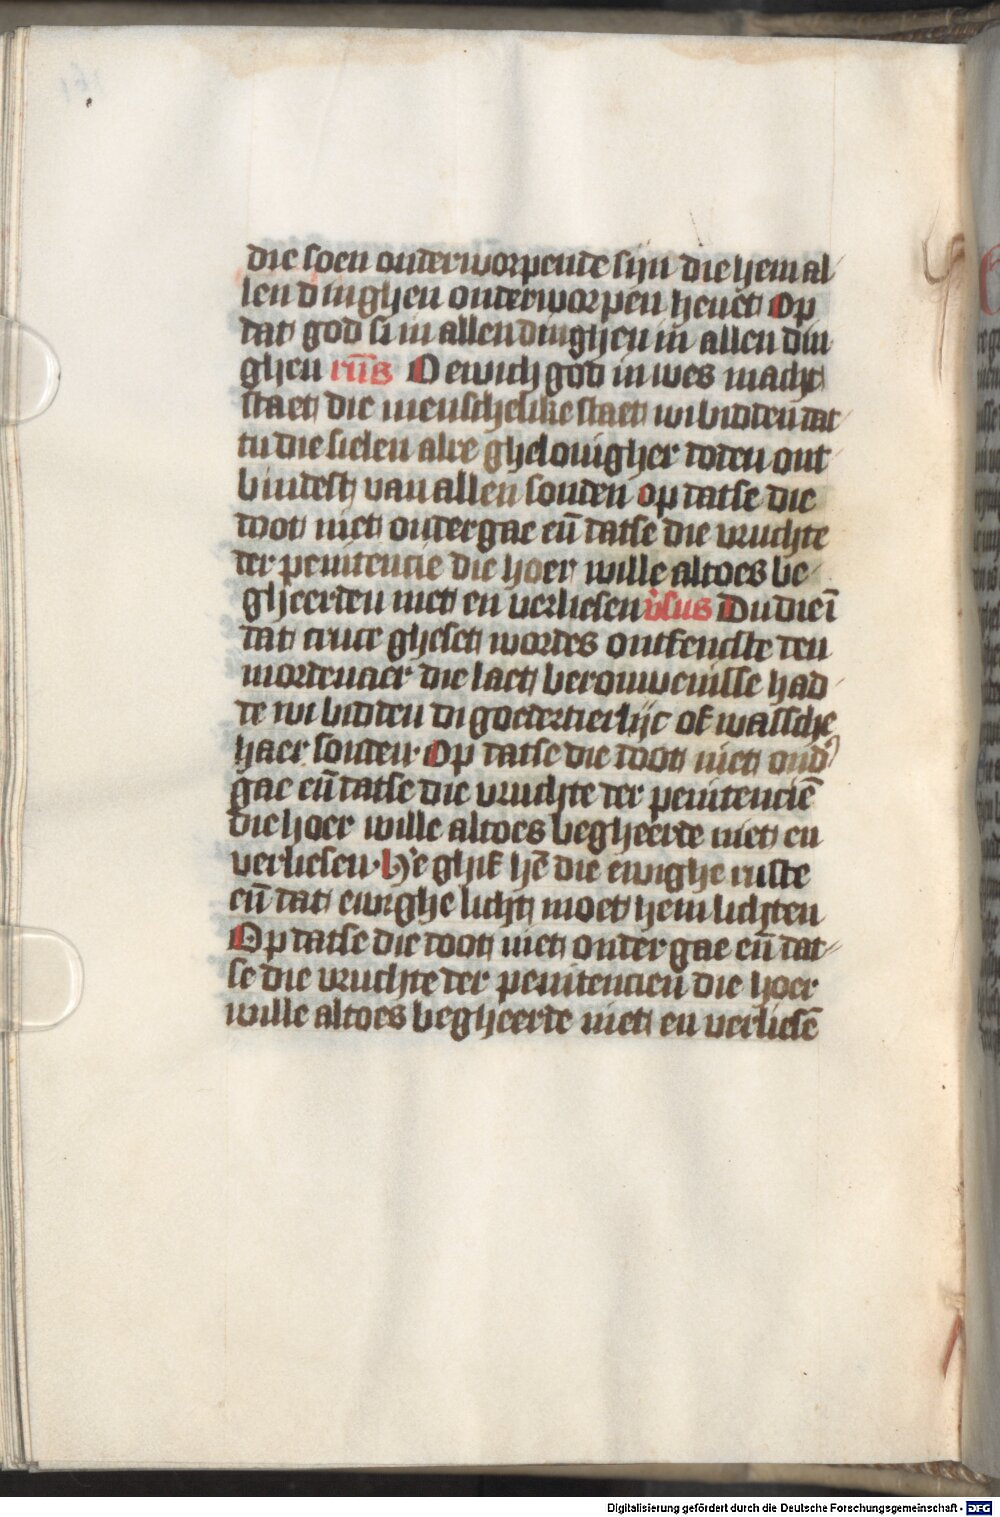 die soen onderworpende sijn die hem al
len dinghen onderworpen heuet Op
dat god si in allen dinghen in allen din
ghen rūs O ewich god in wes macht
staet die menschelike staet wi bidden dat
tu die sielen alre ghelouigher doden ont
bindest van allen sonden op datse die
doot niet ondergae eñ datse die vruchte
der penitencie die hoer wille altoes be
gheerden niet en verliesen vsus Du die ī
dat cruce gheset wordes ontfencste den
mordenaer die laet berouwenisse had
de wi bidden di goedertierlijc of wassche
haer sonden Op datse die doot niet ond'
gae eñ datse die vruchte der penitenciē
die hoer wille altoes begheerde niet en
verliesen He ghif hē die ewighe ruste
eñ dat ewighe licht moet hem lichten
Op datse die doot niet onder gae eñ dat
se die vruchte der penitencien die hoer
wille altoes begheerde niet en verliesē
Digitalisierung gefördert durch die Deutsche Forschungsgemeinschaft - DFG